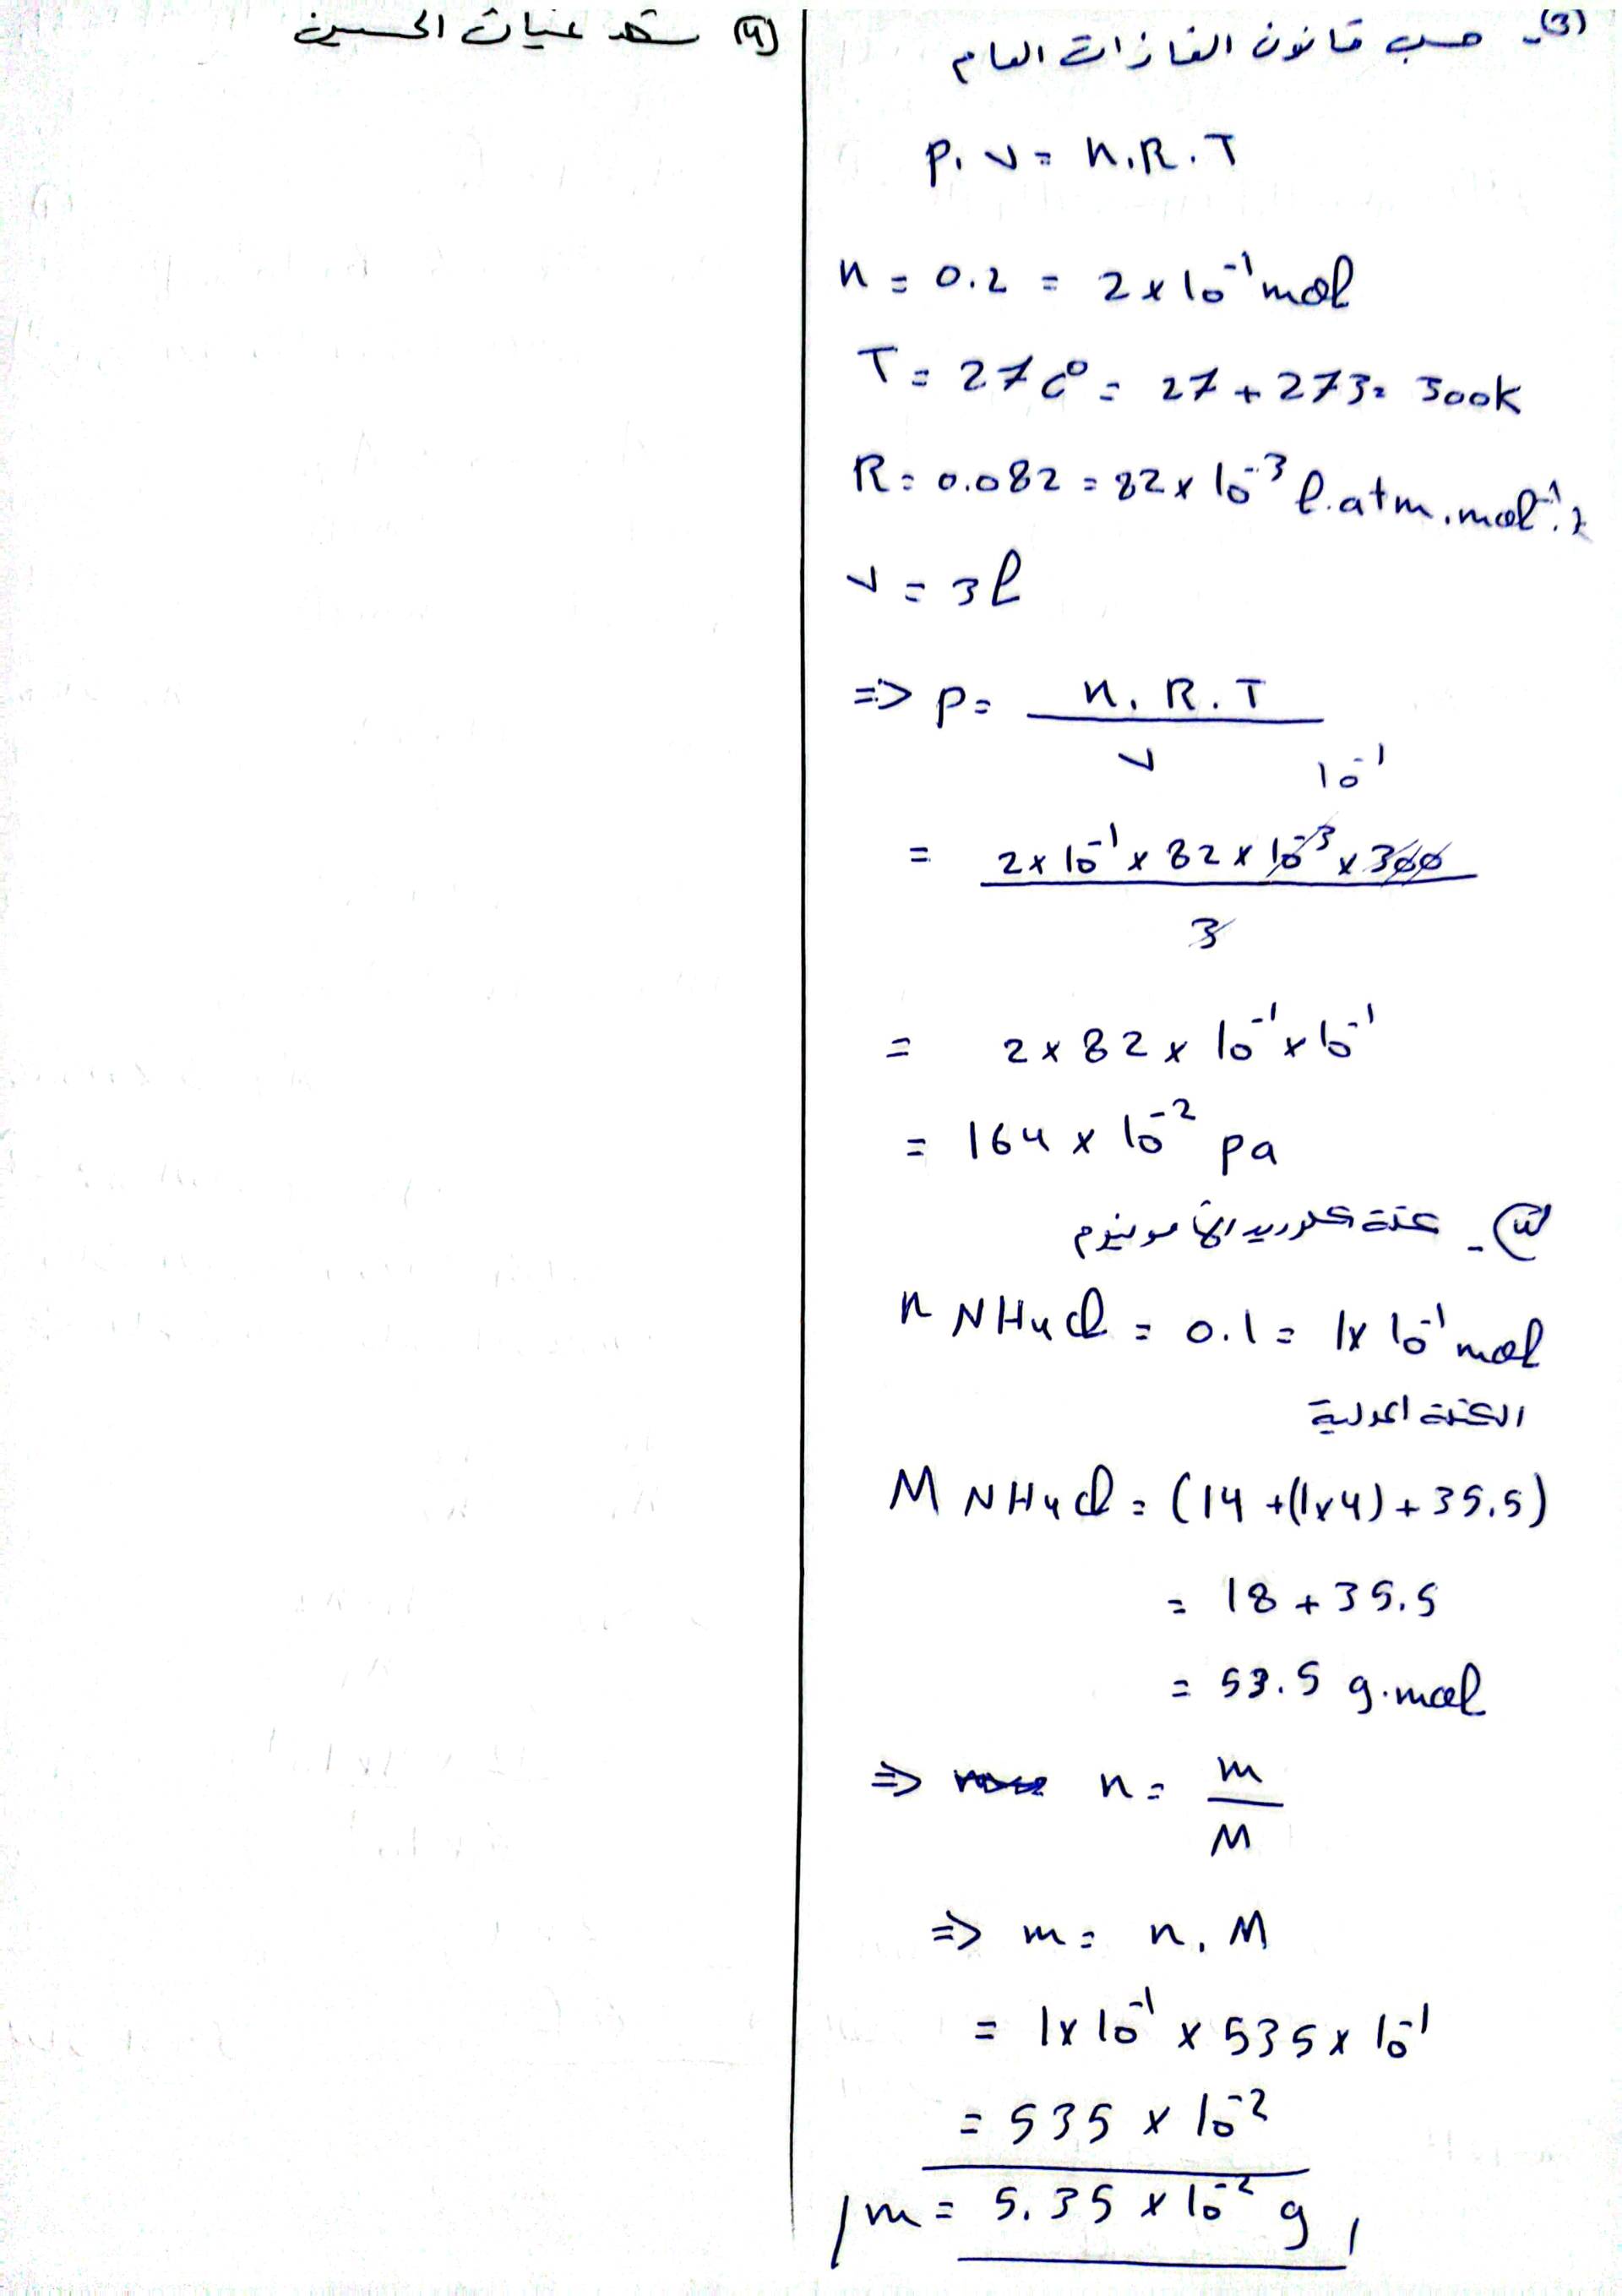 (3)- حسب قانون الغازات العام
P. V = n.R.T
n = 0.2 = 2 x 10^-1 mol
T = 27 C° = 27 + 273 = 300k
R = 0.082 = 82 x 10^-3 l.atm.mol^-1.
V = 3 l
=> P = n. R. T / V
10^-1
= 2 x 10^-1 x 82 x 10^-3 x 300 / 3
= 2 x 82 x 10^-1 x 10^-1
= 164 x 10^-2 pa
- كتلة كلوريد الأمونيوم
n NH4Cl = 0.1 = 1x 10^-1 mol
الكتلة المولية
M NH4Cl = (14 +(1x4) + 35.5)
= 18 + 35.5
= 53.5 g.mol
=> n = m / M
=> m = n. M
= 1x 10^-1 x 535 x 10^-1
= 535 x 10^-2
m = 5.35 x 10^-2 g
(4) الحسين